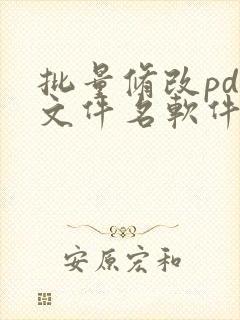 批量脩改pd
文件名軟件
安原宏和